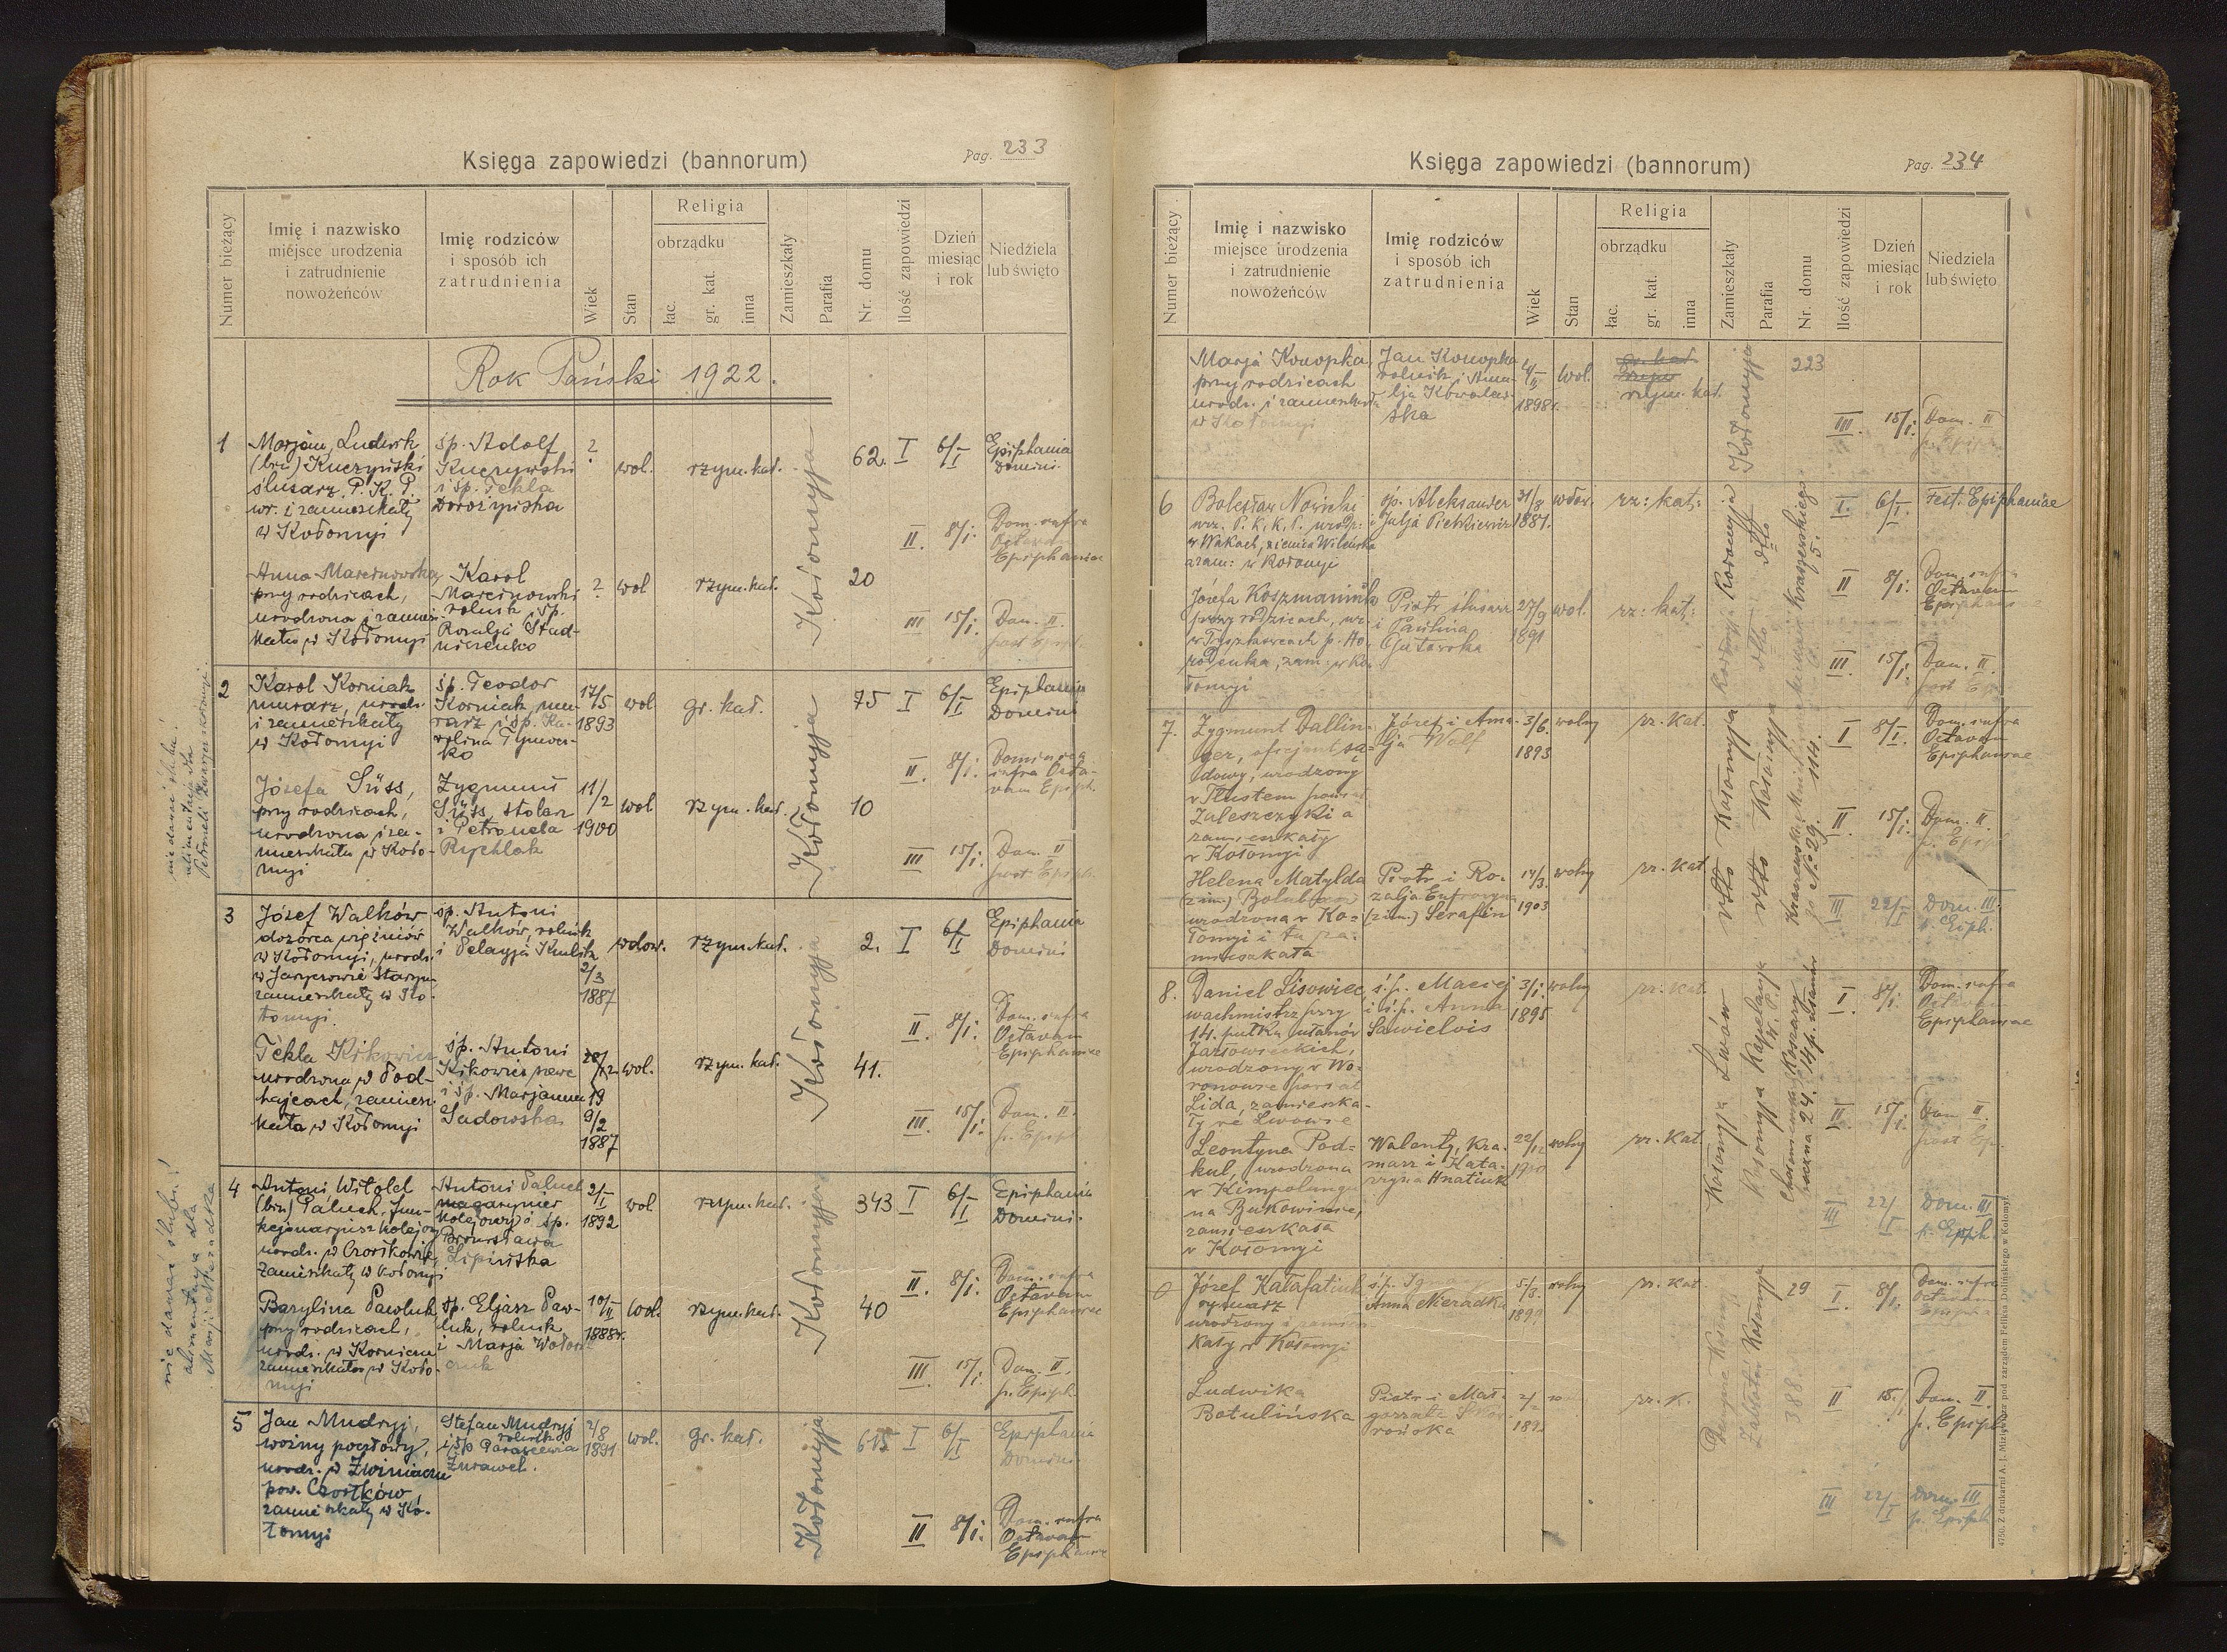 Księga zapowiedzi (bannorum)
Pag. 233
Numer bieżący
Imię i nazwisko
miejsce urodzenia
i zatrudnienie
nowożeńców
Imię rodziców
i sposób ich
zatrudnienia
Wiek
Stan
Religia
obrządku
łac.
gr. kat.
inna
Zamieszkały
Parafia
Nr. domu
Ilość zapowiedzi
Dzień
miesiąc
i rok
Niedziela
lub święto
Rok Pański 1922.
1
Marjan, Ludwik
(bru) Kuczyński
ślusarz P. K. P.
ur. i zamieszkały
w Kołomyi
śp. Adolf
Kuczyński
i śp. Tekla
?
wol.
rzym. kat.
Kołomyja
62.
I
6/I
Epiphania
Domini.
II.
8/I.
Dom. infra
Octavam
Epiphaniae
Anna Marcinowska
przy rodzicach,
urodzona i zamiesz-
kała w Kołomyi
Karol
Marcinowski
rolnik i śp.
Rozalja Stud-
nicenko
?
wol
rzym. kat.
20
III
15/I.
Dom. II.
post Epiph.
2
Karol Korniak
murarz, urodz.
i zamieszkały
w Kołomyi
śp. Teodor
Korniak, mu-
rarz i śp. Ka-
rolina
17/5
1893
wol
gr. kat.
Kołomyja
75
I
6/I
Epiphania
Domini
II.
8/I.
Dominica
infra Octa-
vam Epiph.
Józefa Süss,
przy rodzicach,
urodzona i za-
mieszkała w Koło-
myi
Zygmunt
Süss, stolarz
i Petronela
Rychlak
11/2
1900
wol
rzym. kat.
10
III
15/I.
Dom. II
post Epiph.
3
Józef Walków
dozorca więźniów
w Kołomyi, urodz.
zamieszkały w Ko-
łomyi.
śp. Antoni
Walków, rolnik
i Pelagja
2/3
1887
wdow.
rzym. kat.
Kołomyja
2.
I
6/I
Epiphania
Domini
II.
8/I.
Dom. infra
Octavam
Epiphaniae
Tekla Kikowicz
urodzona w Pod-
hajcach, zamiesz-
kała w Kołomyi
śp. Antoni
Kikowicz
i śp. Marjanna
Sadowska
9/2
1887
wol.
rzym. kat.
41.
III.
15/I.
Dom. II.
p. Epiph.
4
Antoni, Witold
(bru) Paluch, fun-
kcjonarjusz kolejowy
urodz. w Czortkowie,
zamieszkały w Kołomyi
Antoni Paluch
magazynier
kolejowy i śp.
Bronisława
Lipińska
2/I
1892
wol.
rzym. kat.
Kołomyja
343
I
6/I
Epiphania
Domini.
II.
8/I.
Dom. infra
Octavam
Epiphaniae
Barylina Pawluk
przy rodzicach,
urodz. w Korniczu
zamieszkała w Koło-
myi
śp. Eljasz Paw-
luk, rolnik
i Marja
10/II
1888r.
wol.
rzym. kat.
40
III.
15/I.
Dom. II.
p. Epiph.
5
Jan Mudryj,
woźny pocztowy,
urodz. w Zwiniaczu
pow. Czortków,
zamieszkały w Ko-
łomyi
Stefan Mudryj
rolnik
i śp. Parascewia
Żurawel.
2/8
1891
wol.
gr. kat.
Kołomyja
615
I
6/I
Epiphania
Domini
II
8/I.
Dom. infra
Octavam
Epiphaniae
nie dawać ślubu!
alimentacja dla
nie dawać ślubu!
alimentacja dla
Księga zapowiedzi (bannorum)
Pag. 234
Numer bieżący
Imię i nazwisko
miejsce urodzenia
i zatrudnienie
nowożeńców
Imię rodziców
i sposób ich
zatrudnienia
Wiek
Stan
Religia
obrządku
łac.
gr. kat.
inna
Zamieszkały
Parafia
Nr. domu
Ilość zapowiedzi
Dzień
miesiąc
i rok
Niedziela
lub święto
Marja Konopka
przy rodzicach
urodz. i zamieszkała
w Kołomyi
Jan Konopka
rolnik i Ame-
lja Kowalew-
ska
4/II
1898r.
wol.
gr. kat.
rzym. kat.
Kołomyja
223
III.
15/I.
Dom. II
p. Epiph.
6
Bolesław Nowicki
urz. P. K. K. P. urodz.
w Wakach, ziemia Wileńska
zam: w Kołomyi
śp. Aleksander
i Julja Pietkiewicz
31/8
1881.
wdow.
rz: kat:
Kołomyja
I.
6/I.
Fest. Epiphaniae
II
8/I.
Dom. infra
Octavam
Epiphaniae
Józefa Koszmaniuk
przy rodzicach, ur.
w Tyszkowcach p. Ho-
rodenka, zam: w Ko-
łomyi
Piotr ślusarz
i Paulina
Gutowska
27/9
1891
wol.
rz: kat:
III
15/I.
Dom. II.
post Ep.
7.
Zygmunt Dallin-
ger, oficjant są-
dowy, urodzony
w Tłustem powiat
Zaleszczyki a
zamieszkały
w Kołomyi
Józef i Ama-
lja Wolf
3/6.
1893
wolny
rz. kat.
Kołomyja
I
8/I.
Dom. infra
Octavam
Epiphaniae
II.
15/I.
Dom. II.
p. Epiph.
Helena Matylda
urodzona w Ko-
łomyi i tu za-
mieszkała
Piotr i Ro-
zalja Eufrozyna
(2 im.) Serafin
14/3.
1903
wolny
rz. kat
III
22/I
Dom. III.
p. Epiph.
8.
Daniel Lisowiec,
wachmistrz przy
14. pułku ułanów
Jazłowieckich,
urodzony w Wo-
ronowie powiat
Lida, zamieszka-
ły we Lwowie
ś.p. Maciej
i ś.p. Anna
3/I.
1895
wolny
rz. kat.
Lwów
I
8/I.
Dom. infra
Octavam
Epiphaniae
II.
15/I.
Dom. II.
post Ep.
Leontyna Pod-
kul, urodzona
w Kimpolungu
na Bukowinie,
zamieszkała
w Kołomyi
Walenty, kra-
marz i Kata-
rzyna Hnatiuk
wolny
rz. kat.
Kołomyja
III
22/I
Dom. III
p. Epiph.
Józef Kałafatiuk
rymarz
urodzony i zamiesz-
kały w Kołomyi
Anna Nieradka
5/3.
wolny
rz. kat.
Kołomyja
29
I.
8/I.
Dom. infra
Octavam
Epiph.
Ludwika
Botulińska
Piotr i Mał-
gorzata
rz. k.
388
II
15/I
Dom. II.
p. Epiph.
III
22/I
Dom. III
p. Epiph.